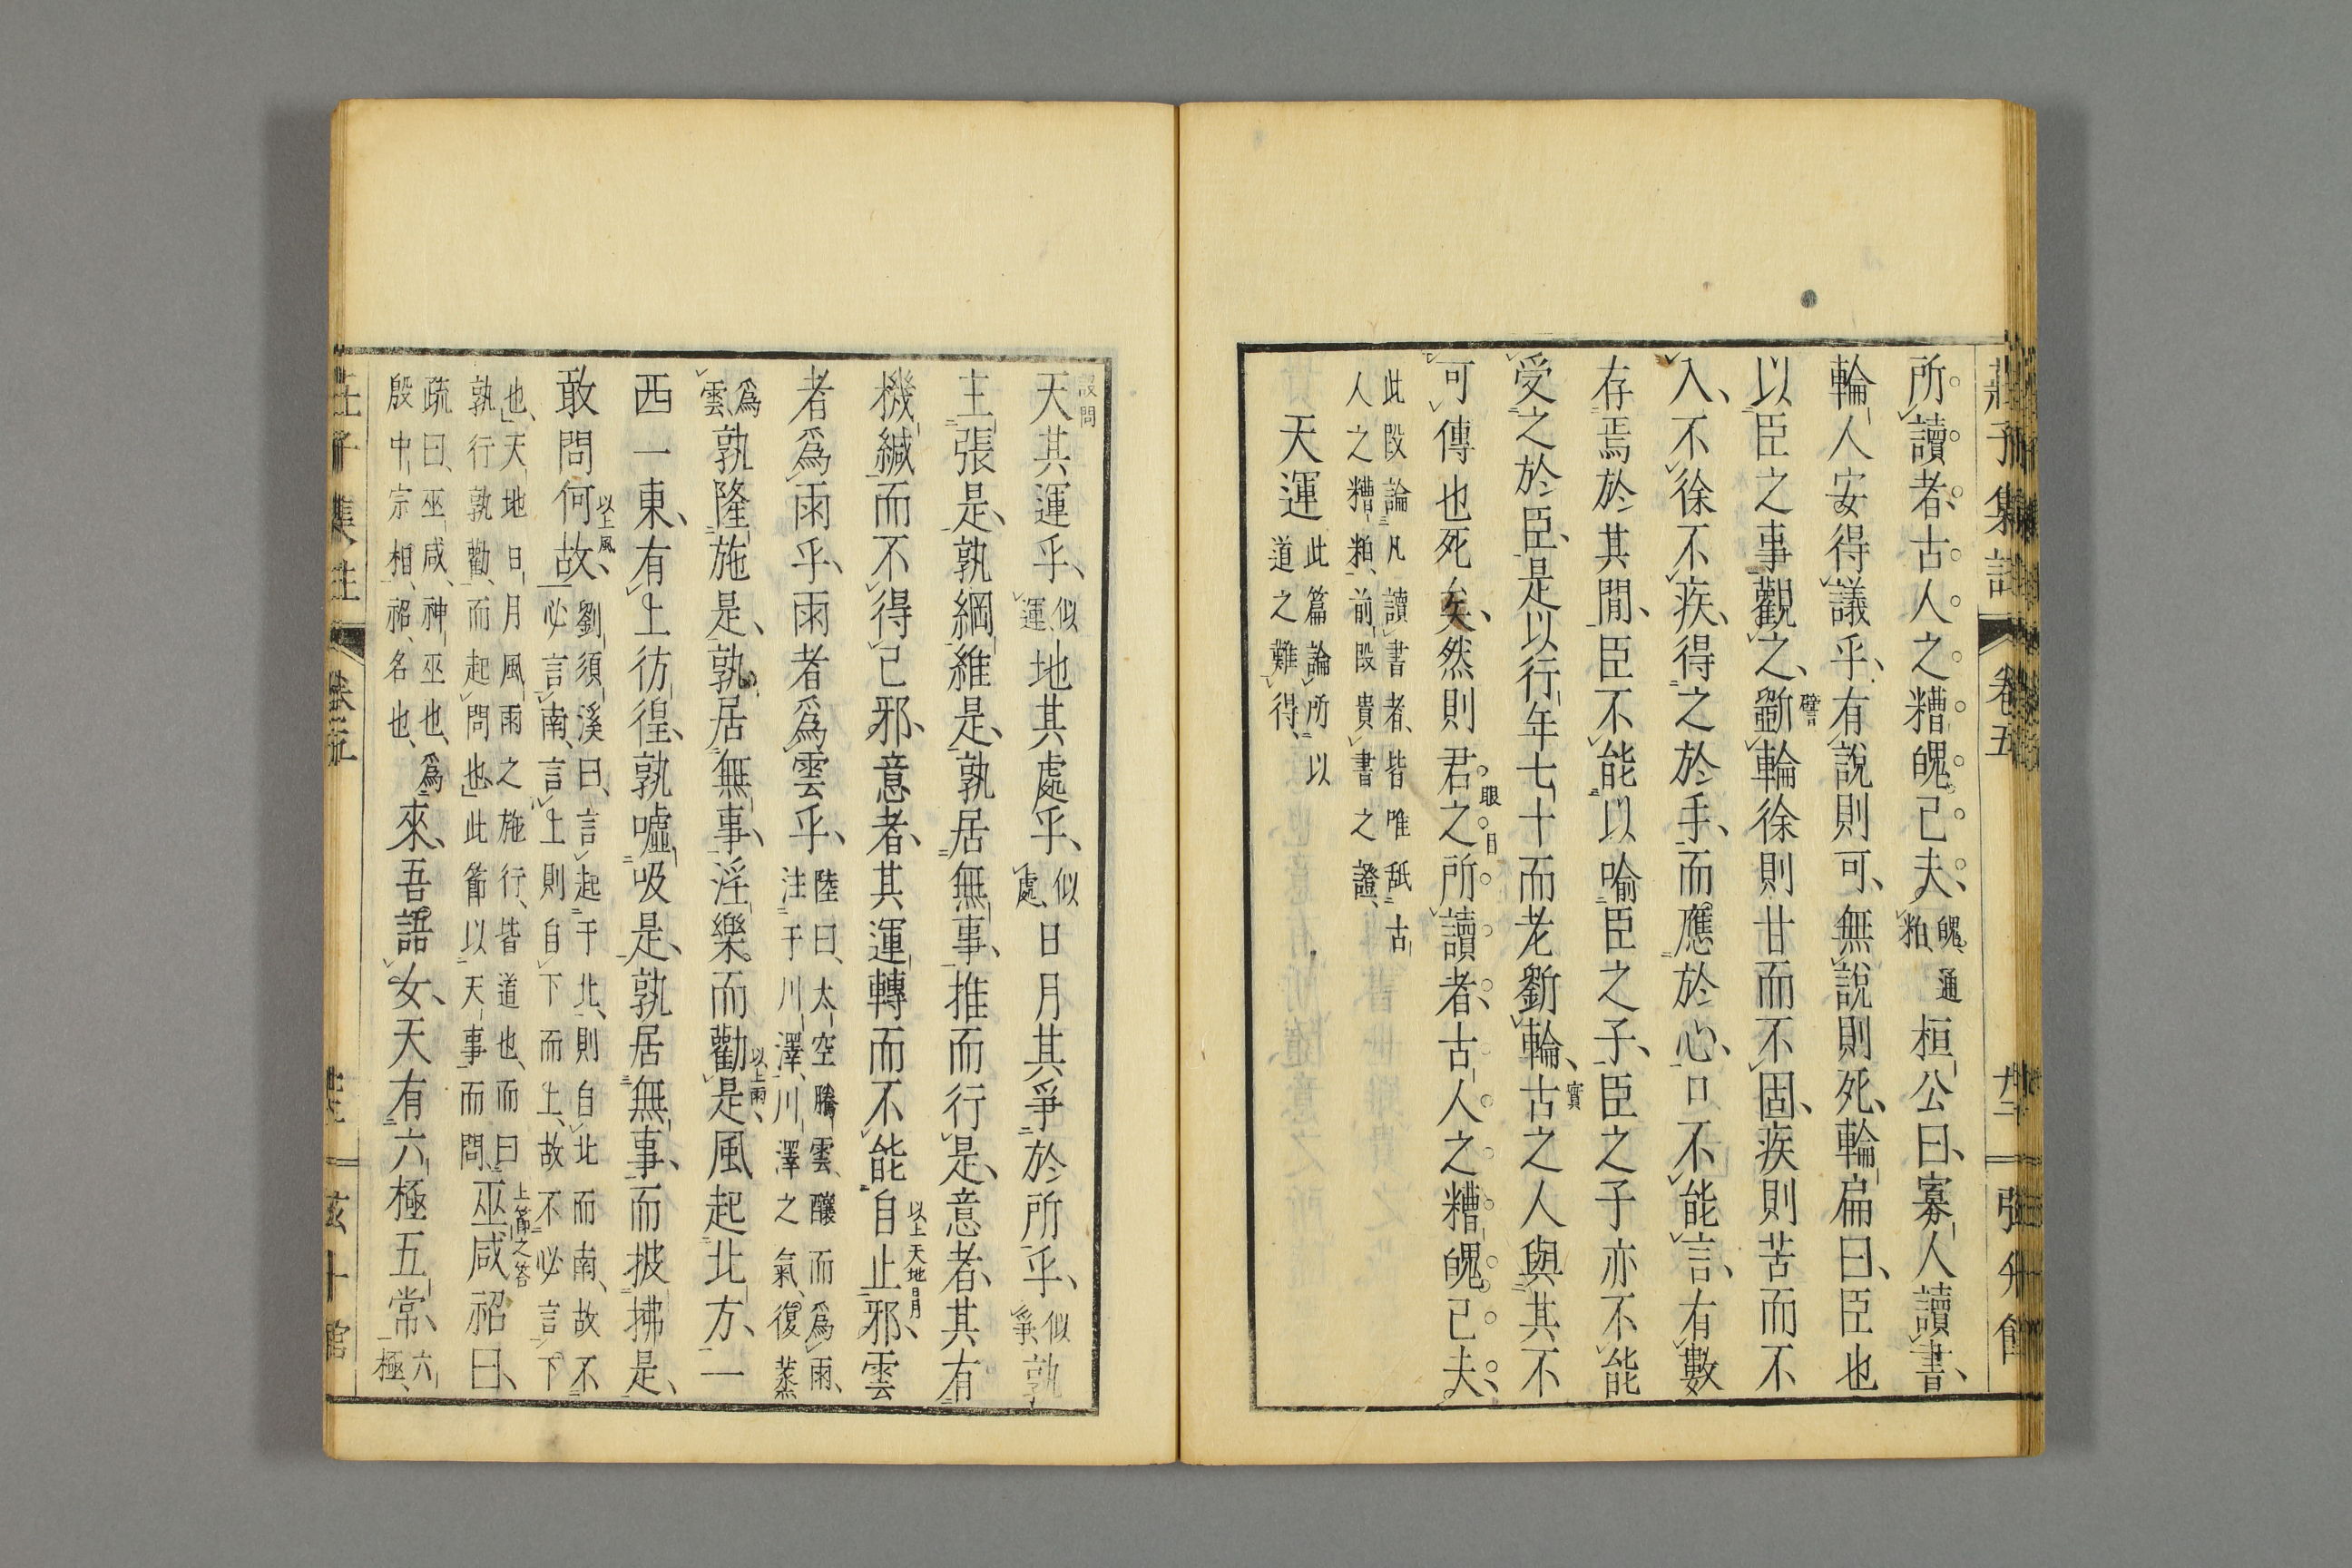 莊子集註 卷五
所讀者、古人之糟魄已夫、魄、通粕、桓公曰、寡人讀書、
輪人安得議乎、有說則可、無說則死、輪扁曰、臣也
以臣之事觀之、斲輪徐則甘而不固、疾則苦而不
譬
入、不徐不疾、得之於手、而應於心、口不能言、有數
存焉於其閒、臣不能以喻臣之子、臣之子亦不能
受之於臣、是以行年七十而老斲輪、古之人與其不
實
可傳也死矣、然則君之所讀者、古人之糟魄已夫、
眼目
此段論凡讀書者、皆唯舐古
人之糟粕、前段貴書之證、
天運 此篇論所以
道之難得、
設問
天其運乎、似運、地其處乎、似處、日月其爭於所乎、似爭、孰
主張是、孰綱維是、孰居無事、推而行是、意者、其有
機緘而不得已邪、意者、其運轉而不能自止邪、雲
以上天地日月、
者爲雨乎、雨者爲雲乎、陸曰、太空騰雲、釀而爲雨、
注于川澤、川澤之氣、復蒸
爲雲、孰隆施是、孰居無事、淫樂而勸是、風起北方、一
以上雨、
西一東、有上彷徨、孰噓吸是、孰居無事、而披拂是、
敢問何故、劉須溪曰、言起于北、則自北而南、故不
必言南、言上則自下而上、故不必言下
以上風、
也、天地日月風雨之施行、皆道也、而曰
孰行孰勸、而起問也、此節以天事而問、巫咸祒曰、
上節之答
疏曰、巫咸、神巫也、爲
殷中宗相、祒、名也、來、吾語女、天有六極五常、六極、